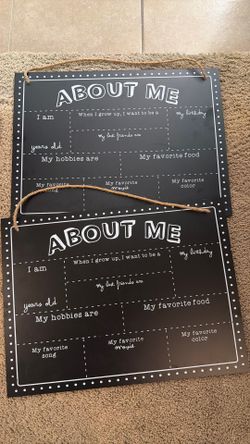 ABOUT ME
I am
When I grow up, I want to be a
my birthday
my best friends are
years old
My hobbies are
My favorite food
My favorite
My favorite
movie
My favorite
color
ABOUT ME
I am
When I grow up, I want to be a
my birthday
my best friends are
years old
My hobbies are
My favorite food
My favorite
song
My favorite
movie
My favorite
color